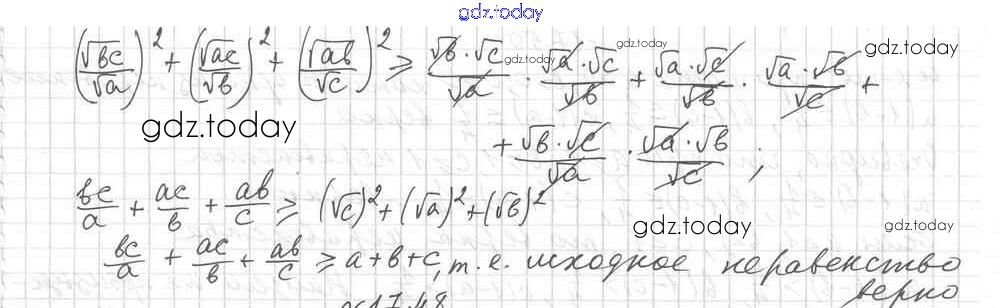 gdz.today
(√bc/√a)² + (√ac/√b)² + (√ab/√c)² ≥ √b·√c/√a · √a·√c/√b + √a·√c/√b · √a·√b/√c +
gdz.today
gdz.today
gdz.today
+ √b·√c/√a · √a·√b/√c ;
bc/a + ac/b + ab/c ≥ (√c)² + (√a)² + (√b)²
gdz.today
gdz.today
bc/a + ac/b + ab/c ≥ a+b+c, т.е. исходное неравенство
верно